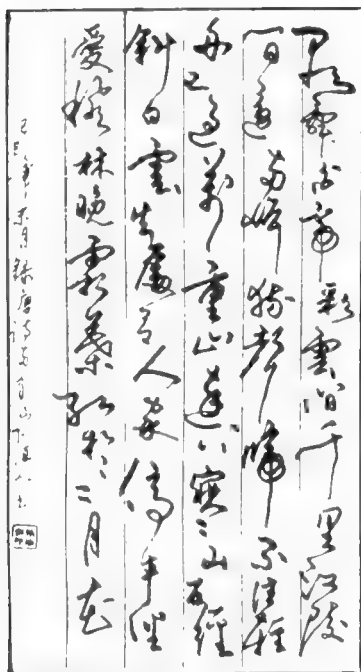 朝辞白帝彩雲间千里江陵
一日還两岸猿聲啼不住輕
舟已過萬重山遠上寒山石徑
斜白雲生處有人家停車坐
愛楓林晚霜葉红於二月花
錄唐诗两首